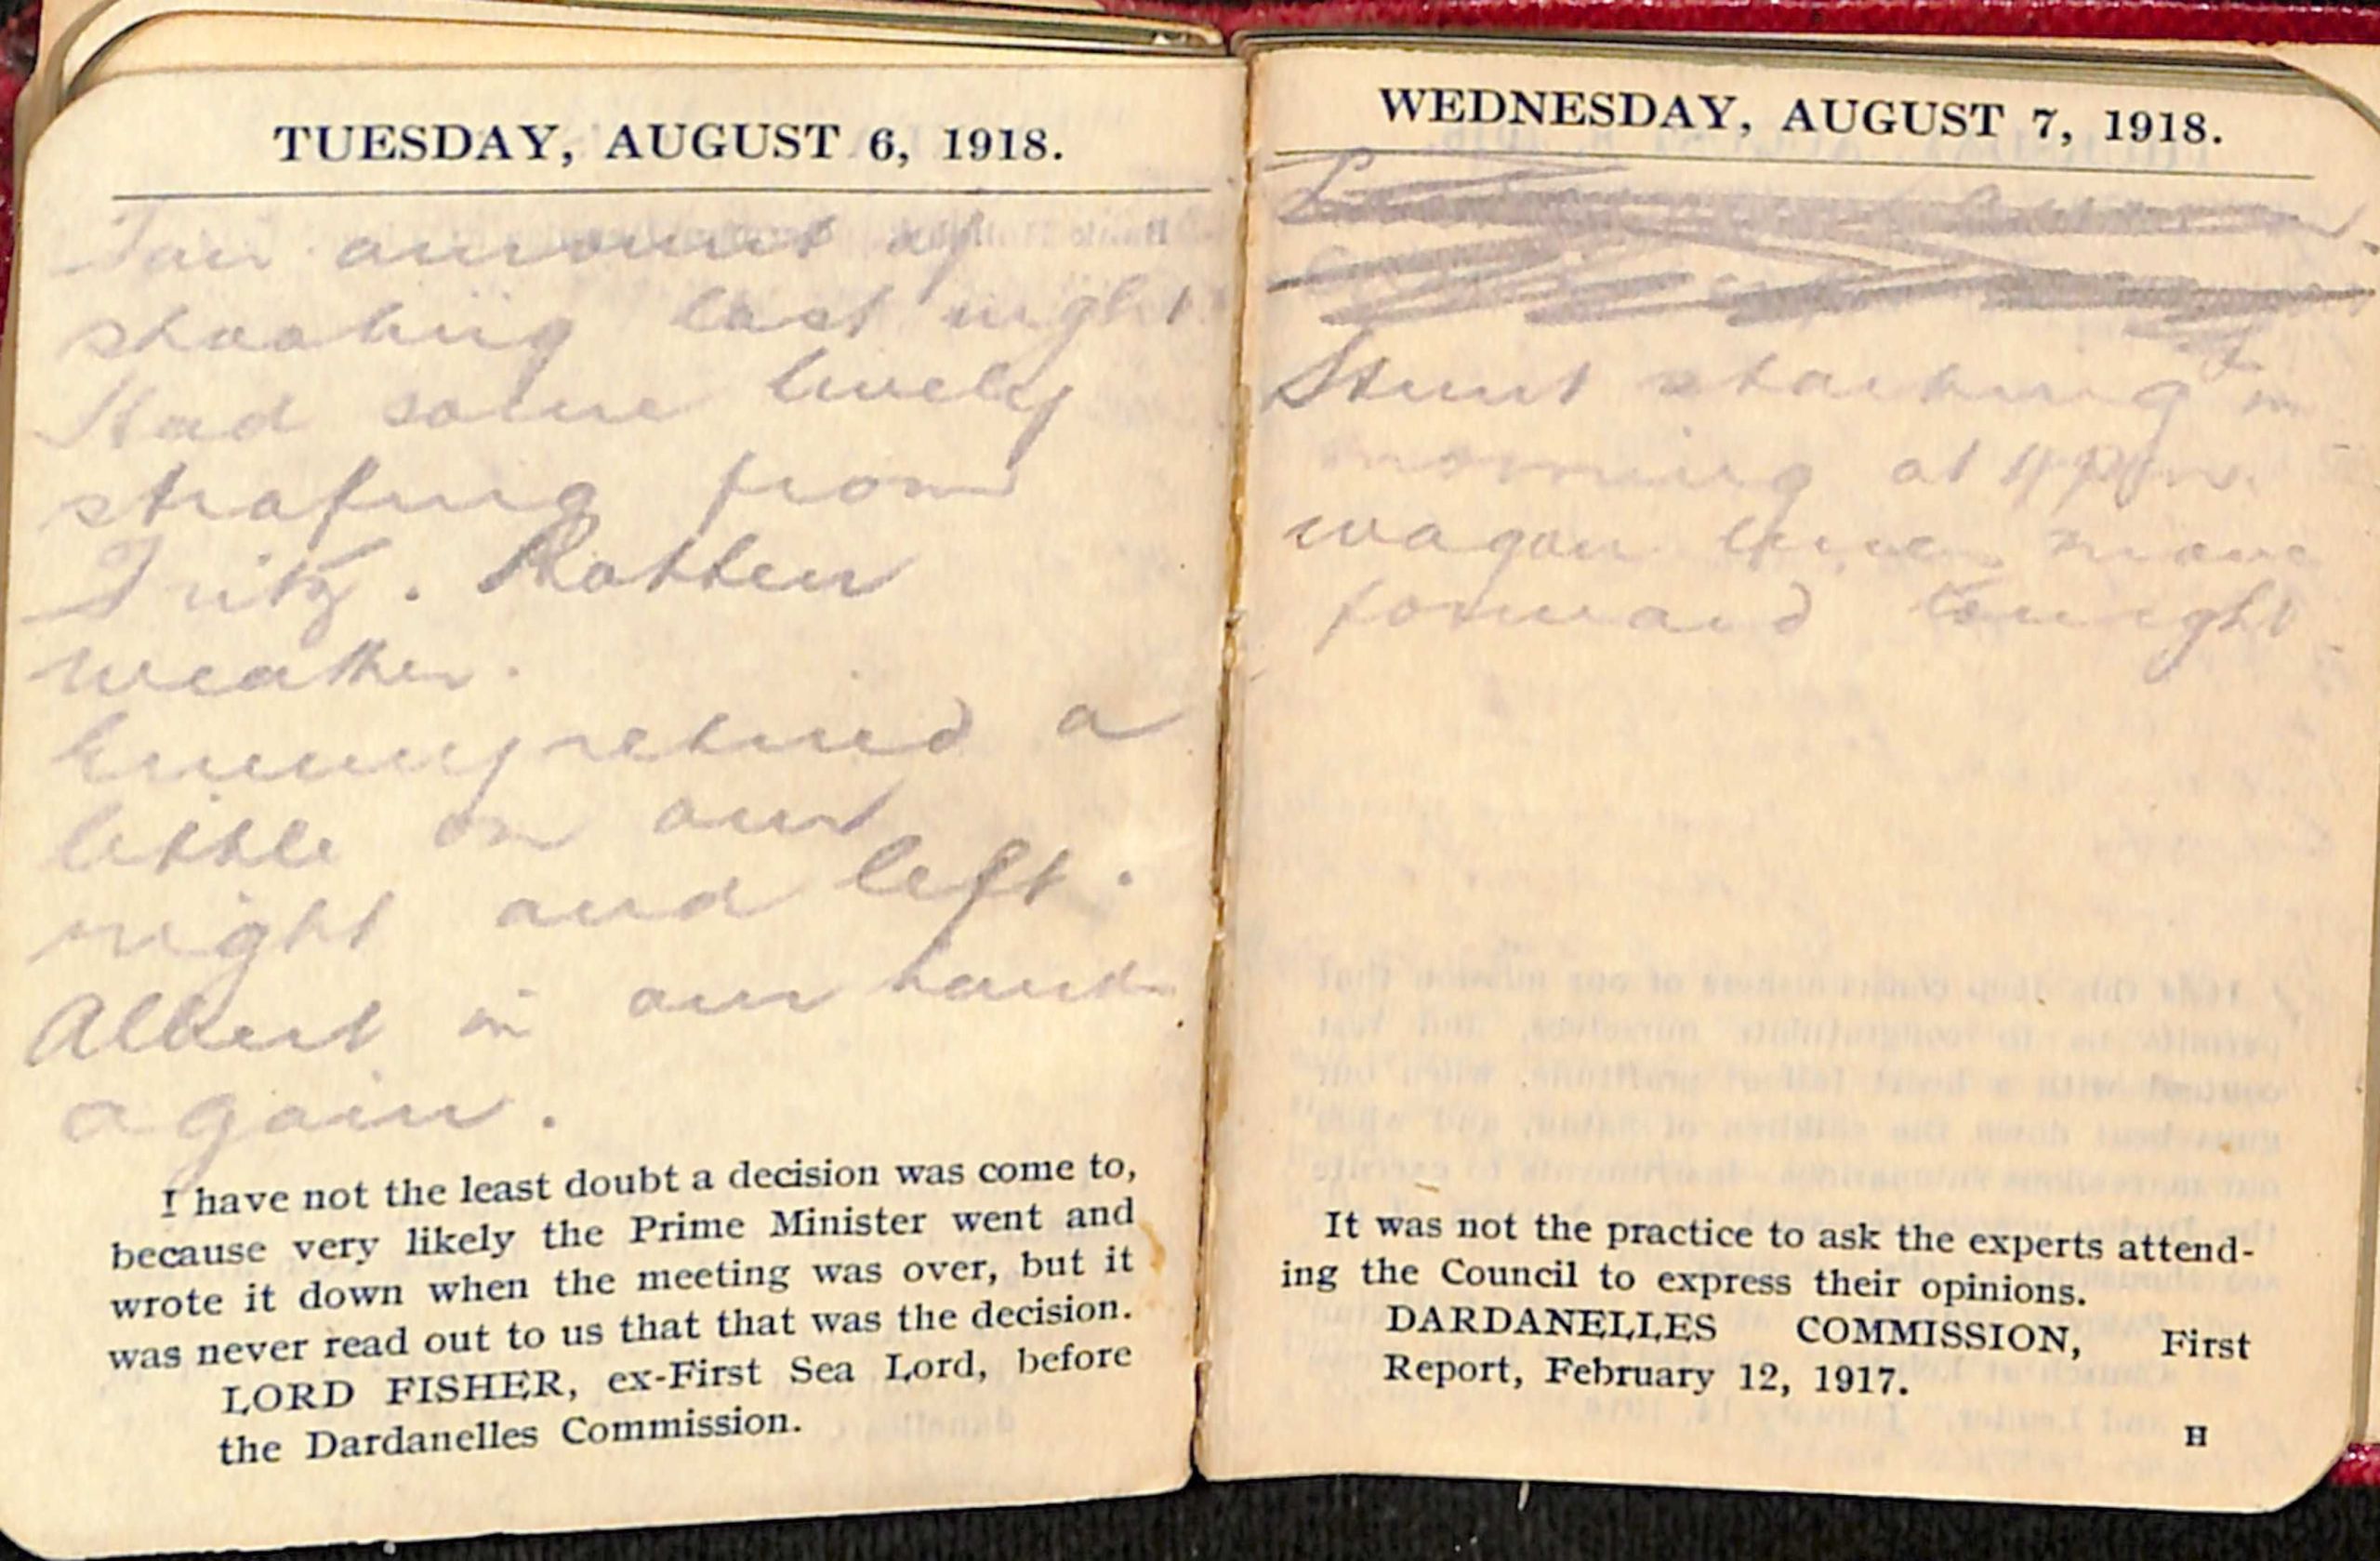 TUESDAY, AUGUST 6, 1918.
Fair amount of
shooting last night
Had some lively
strafing from
Fritz. Rotten
weather.
Enemy retired a
little on our
right and left.
Albert in our hands
again.
I have not the least doubt a decision was come to,
because very likely the Prime Minister went and
wrote it down when the meeting was over, but it
was never read out to us that that was the decision.
LORD FISHER, ex-First Sea Lord, before
the Dardanelles Commission.
WEDNESDAY, AUGUST 7, 1918.
Stunt starting in
morning at
wagon lines move
forward tonight
It was not the practice to ask the experts attend-
ing the Council to express their opinions.
DARDANELLES COMMISSION, First
Report, February 12, 1917.
H